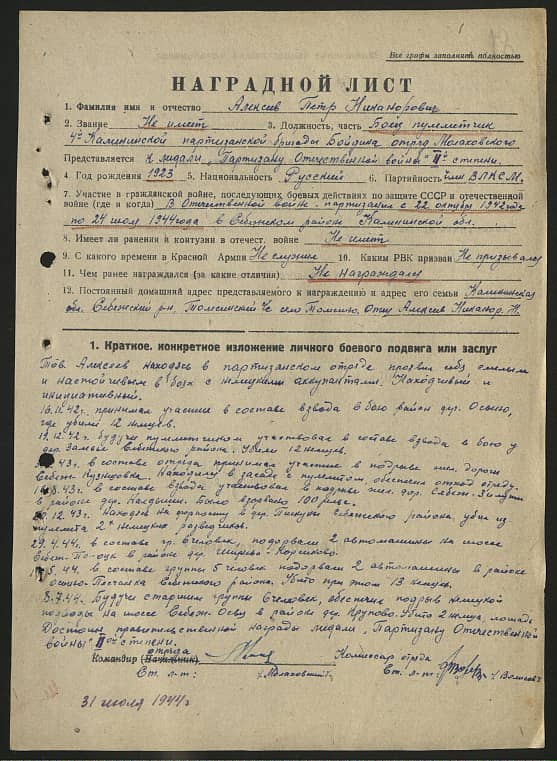 Все графы заполнять полностью
НАГРАДНОЙ ЛИСТ
1. Фамилия имя и отчество Алексеев Петр Никанорович
2. Звание Не имеет 3. Должность, часть Боец пулеметчик
4й Калининской партизанской бригады Бойдина отряд Молоковского
Представляется к медали „Партизану Отечественной войны" IIй степени.
4. Год рождения 1923 5. Национальность Русский 6. Партийность член ВЛКСМ.
7. Участие в гражданской войне, последующих боевых действиях по защите СССР и отечественной
войне (где и когда) В Отечественной войне партизаном с 22 октября 1942 года
по 24 июля 1944 года в Себежском районе Калининской обл.
8. Имеет ли ранения и контузии в отечест. войне Не имеет
9. С какого времени в Красной Армии Не служил 10. Каким РВК призван Не призывался
11. Чем ранее награждался (за какие отличия) Не награждался
12. Постоянный домашний адрес представляемого к награждению и адрес его семьи Калининская
обл. Себежский р-н, Отец Алексеев Никанор
1. Краткое, конкретное изложение личного боевого подвига или заслуг
Тов. Алексеев находясь в партизанском отряде проявил себя смелым
и настойчивым в боях с немецкими оккупантами. Находчивый и
инициативный.
16.12.42г. принимал участие в составе взвода в бою район дер. Осыно,
где убили 12 немцев.
19.12.42г. будучи пулеметчиком участвовал в составе взвода в бою у
дер. Себежского района. Убили 12 немцев.
43г. в составе отряда принимал участие в подрыве жел. дороги
Себеж Кузнецовка. Находился в засаде с пулеметом, обеспечил отход отряду.
43г. в составе взвода участвовал в подрыве жел. дор. Себеж-Зилупе
в районе дер. Было взорвано 100 рельс.
20.12.43г. Находясь на дер. Себежского района, убил из
пулемета 2х немецких разведчиков.
29.4.44г. в составе гр. 6 человек, подорвали 2 автомашины на шоссе
Себеж-Полоцк в районе дер.
5.44г. в составе группы 5 человек подорвали 2 автомашины в районе
Осыно-Песчанка Себежского района. Убито при этом 13 немцев.
8.7.44г. Будучи старшим группы 6 человек, обеспечил подрыв немецкой
повозки на шоссе Себеж-Освея в районе дер. Убито 2 немца, лошадь
Достоин правительственной награды медали „Партизану Отечественной
войны" IIой степени.
Командир (Начальник) отряда Комиссар отряда
Ст. л-т: Ст. л-т:
31 июля 1944г